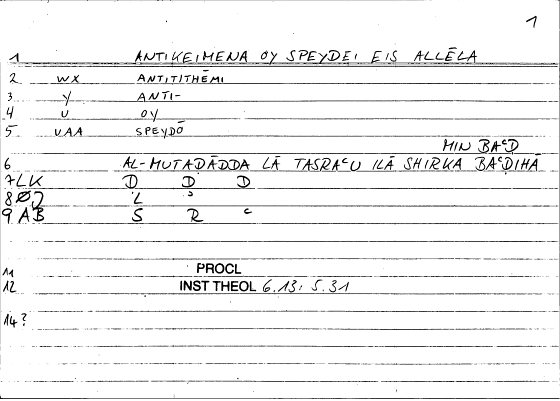 1
1 ANTIKEIMENA OY SPEYDEI EIS ALLĒLA
2 WX ANTITITHĒMI
3 Y ANTI-
4 U OY
5 UAA SPEYDŌ
MIN BAᶜD
6 AL-MUTAḌĀDDA LĀ TASRAᶜU ILĀ SHIRKA BAᶜḌIHĀ
7 LK D D D
8 ØJ L ɔ
9 AB S R ᶜ
11 PROCL
12 INST THEOL 6.13: 5.31
14?